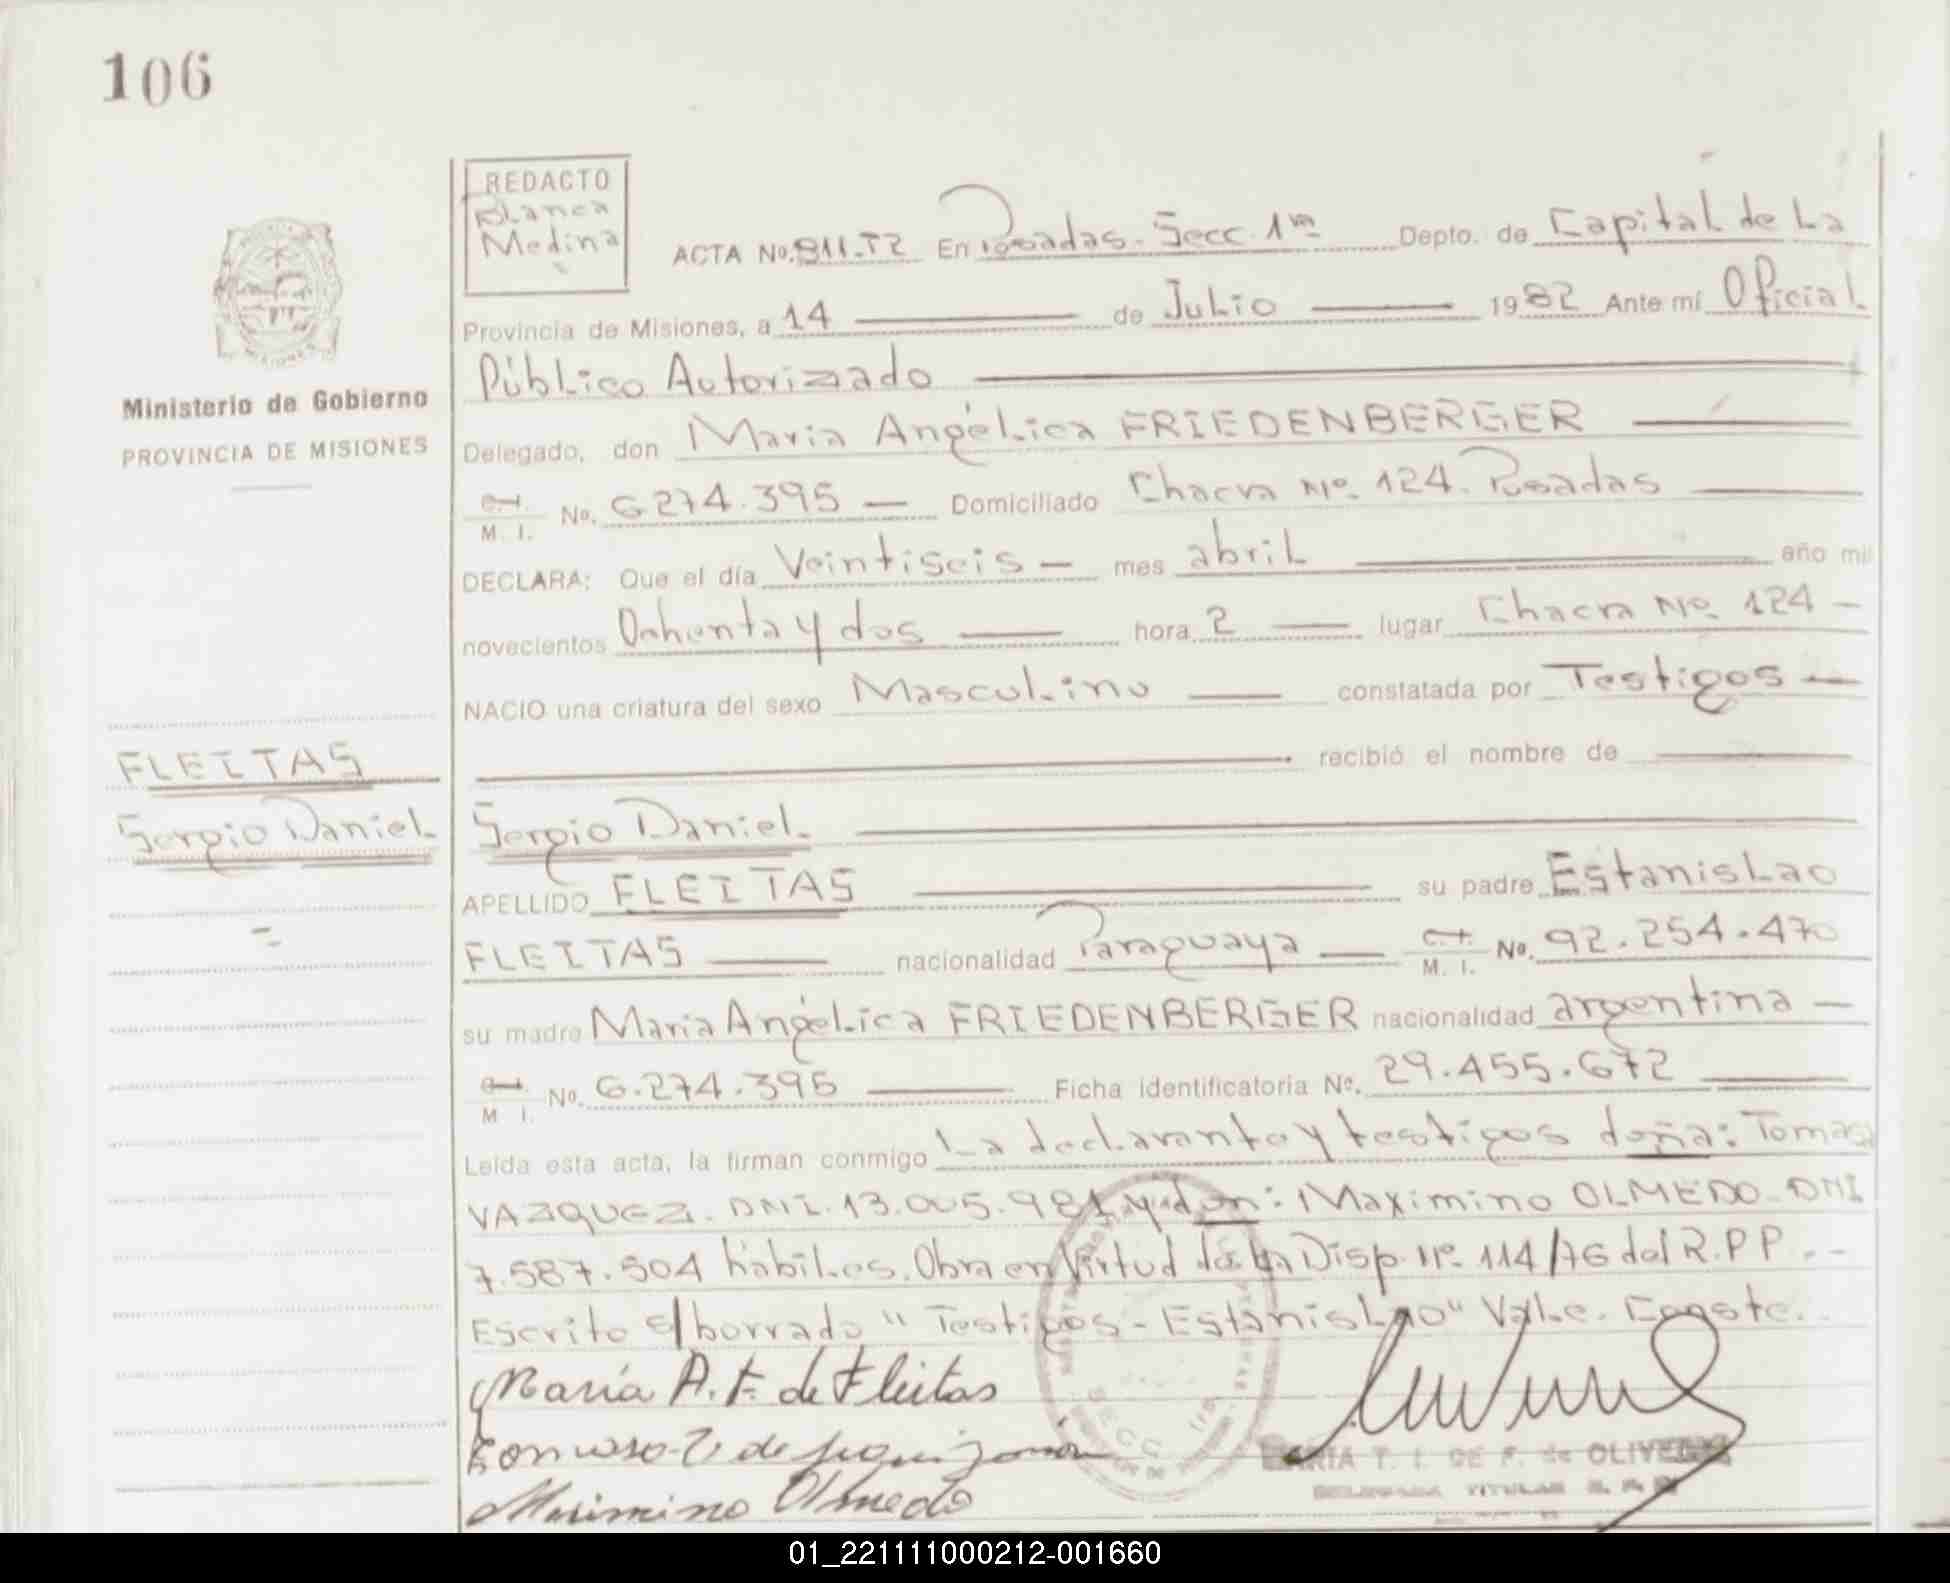 106
REDACTO
Blanca
Medina
ACTA No. 811.T2 En Posadas. Secc. 1ra Depto. de Capital de La
Provincia de Misiones, a 14 de Julio 1982 Ante mí Oficial
Público Autorizado
MISIONES
Ministerio de Gobierno
PROVINCIA DE MISIONES
Delegado, don Maria Angélica FRIEDENBERGER
M. I. No. 6.274.395 Domiciliado Chacra Nº 124. Posadas
DECLARA: Que el día Veintiseis mes abril año mil
novecientos Ochenta y dos hora 2 lugar Chacra Nº 124
NACIO una criatura del sexo Masculino constatada por Testigos
recibió el nombre de
FLEITAS
Sergio Daniel
Sergio Daniel
APELLIDO FLEITAS su padre Estanislao
FLEITAS nacionalidad Paraguaya M. I. No. 92.254.470
su madre María Angélica FRIEDENBERGER nacionalidad argentina
M. I. No. 6.274.395 Ficha identificatoria Nº. 29.455.672
Leída esta acta, la firman conmigo La declarante y testigos doña: Tomasa
VAZQUEZ. DNI. 13.005.981 y don: Maximino OLMEDO. DNI
7.587.504 hábiles. Obra en Virtud de la Disp. Nº 114/76 del R.P.P.
Escrito s/borrado "Testigos - Estanislao" Vale. Conste.
María A. F. de Fleitas
Maximino Olmedo
MARIA T. I. DE F. de OLIVERA
DELEGADA TITULAR
SECC
01_221111000212-001660